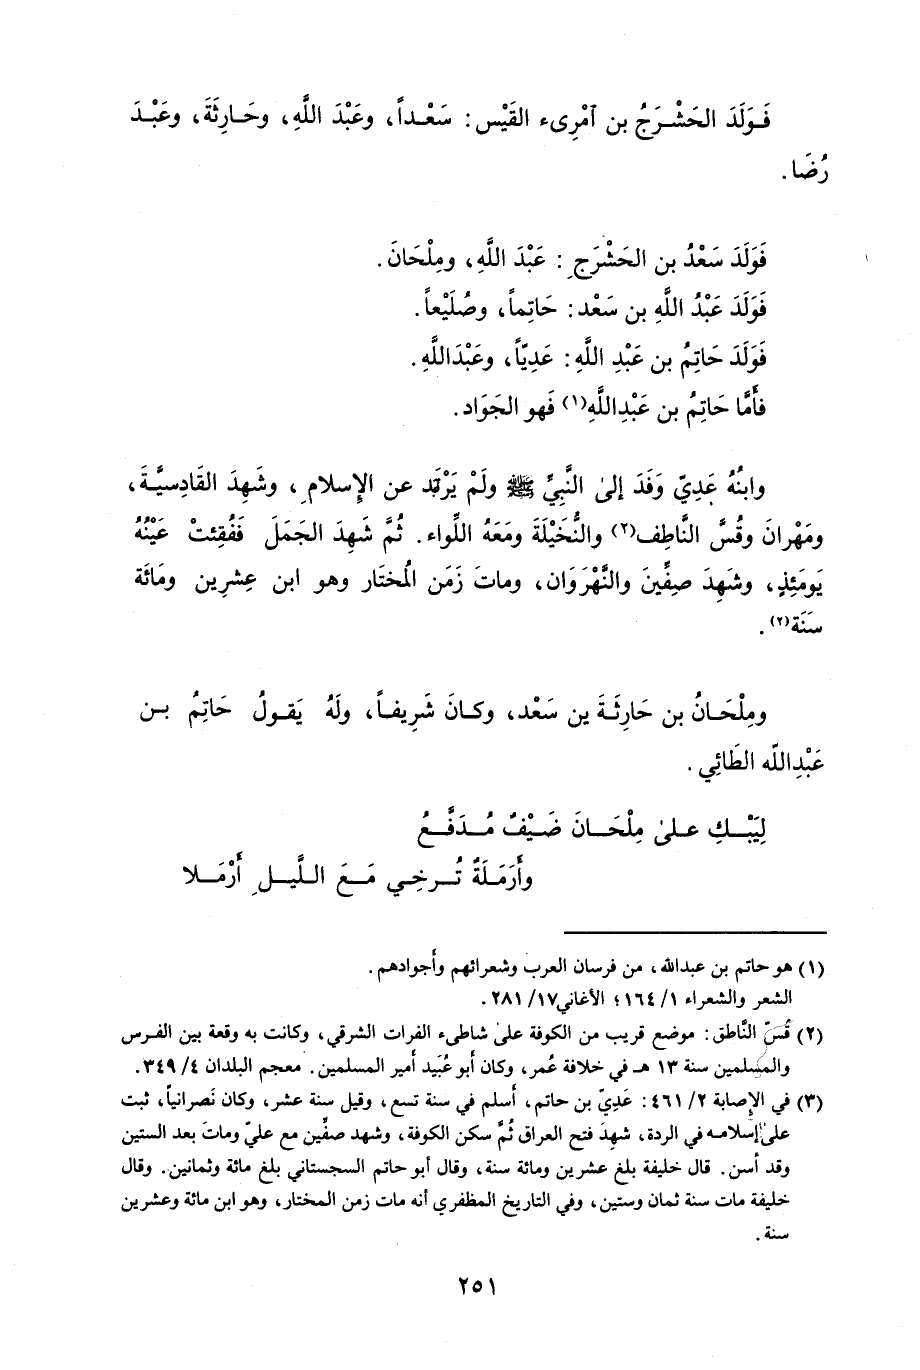 فَوَلَدَ الحَشْرَجُ بن آمْرِىء القَيْس: سَعْداً، وعَبْدَ اللَّهِ، وحَارِثَةَ، وعَبْدَ
رُضَا.
فَوَلَدَ سَعْدُ بن الحَشْرَجِ: عَبْدَ اللَّهِ، ومِلْحَانَ.
فَوَلَدَ عَبْدُ اللَّهِ بن سَعْد: حَاتِماً، وصُلَيْعاً.
فَوَلَدَ حَاتِمُ بن عَبْدِ اللَّهِ: عَدِيّاً، وعَبْدَاللَّهِ.
فأَمَّا حَاتِمُ بن عَبْدِاللَّهِ(١) فَهو الجَوَاد.
وابنُهُ عَدِيّ وَفَدَ إلىٰ النَّبِيِّ ﷺ ولَمْ يَرْتَد عن الإِسلامِ، وشَهِدَ القَادِسيَّةَ،
ومَهْرانَ وقُسَّ النَّاطِف(٢) والنُّخَيْلَةَ ومَعَهُ اللِّواء. ثُمَّ شَهِدَ الجَمَلَ فَفُقِئتْ عَيْنُهُ
يَومَئِذٍ، وشَهِدَ صِفِّينَ والنَّهْرَوَان، وماتَ زَمَن المُختَار وهو ابن عِشرِين ومَائَة
سَنَة(٢).
ومِلْحَانُ بن حَارِثَةَ ين سَعْد، وكانَ شَرِيفاً، ولَهُ يَقولُ حَاتِمُ بن
عَبْدِاللّه الطَائِي.
لِيَبْكِ علىٰ مِلْحَانَ ضَيْفٌ مُدَفَّعُ
وأَرَمَلَةٌ تُرخِي مَعَ اللَّيلِ أَرْمَلا
(١) هو حاتم بن عبدالله، من فرسان العرب وشعرائهم وأجوادهم.
الشعر والشعراء ١/ ١٦٤؛ الأغاني١٧/ ٢٨١.
(٢) قُسّ النَّاطق: موضع قريب من الكوفة علىٰ شاطىء الفرات الشرقي، وكانت به وقعة بين الفرس
والمسلمين سنة ١٣ هـ في خلافة عُمر، وكان أبو عُبَيد أمير المسلمين. معجم البلدان ٤/ ٣٤٩.
(٣) في الإِصابة ٢/ ٤٦١: عَدِيّ بن حاتم، أسلم في سنة تسع، وقيل سنة عشر، وكان نَصرانياً، ثبت
علىٰ إسلامه في الردة، شهِدَ فتح العراق ثُمَّ سكن الكوفة، وشهد صفِّين مع عليّ وماتَ بعد الستين
وقد أسن. قال خليفة بلغ عشرين ومائة سنة، وقال أبو حاتم السجستاني بلغ مائة وثمانين. وقال
خليفة مات سنة ثمان وستين، وفي التاريخ المظفري أنه مات زمن المختار، وهو ابن مائة وعشرين
سنة.
٢٥١